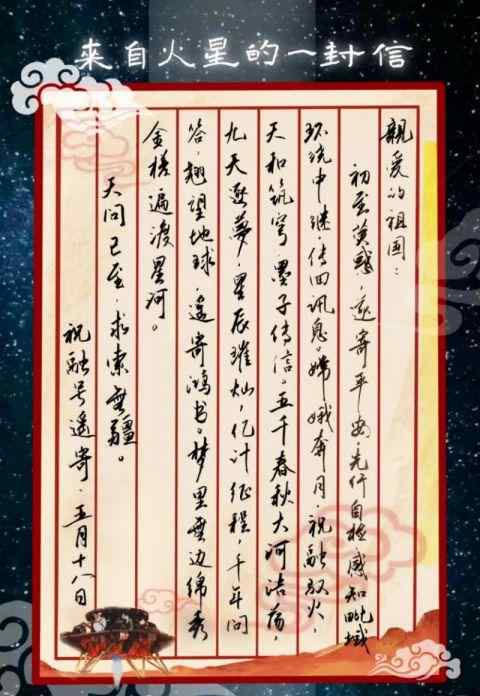 來自火星的一封信
親爱的祖国：
初至荧惑，遥寄平安。先行自检感知毗域
环绕中继，传回讯息。嫦娥奔月，祝融驭火，
天和筑穹，墨子传信。五千春秋大河浩荡，
九天逐夢，星辰璀灿，亿计征程，千年问
答，翘望地球，遥寄鸿书。梦里無边绵秀
金槎遍渡星河。
天问已至，求索無疆。
祝融号遥寄·五月十八日